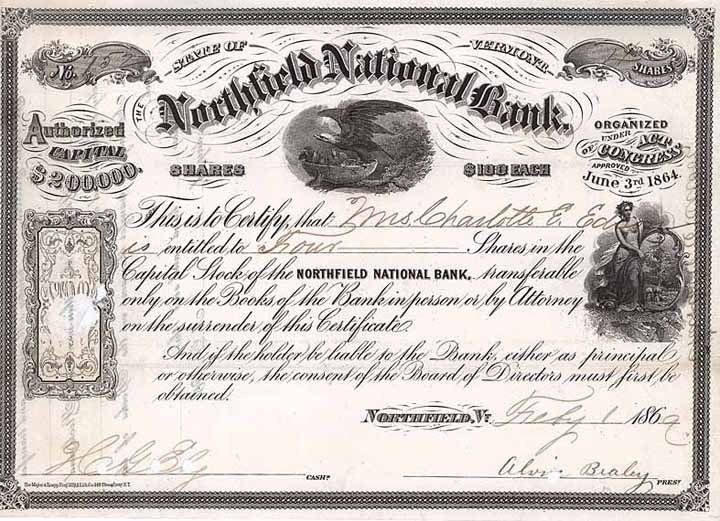 STATE OF VERMONT
No. 157
SHARES
THE Northfield National Bank.
Authorized CAPITAL $200,000.
SHARES $100 EACH
ORGANIZED UNDER ACT OF CONGRESS APPROVED June 3rd 1864.
This is to Certify, that Mrs. Charlotte E. Ed
is entitled to Four Shares in the
Capital Stock of the NORTHFIELD NATIONAL BANK, transferable
only on the Books of the Bank in person or by Attorney
on the surrender of this Certificate.
And if the holder be liable to the Bank, either as principal
or otherwise, the consent of the Board of Directors must first be
obtained.
NORTHFIELD, Vt. Feby 1 1869
CASHR
Alvin Braley PREST
The Major & Knapp Eng. Mfg & Lith. Co. 449 Broadway N.Y.